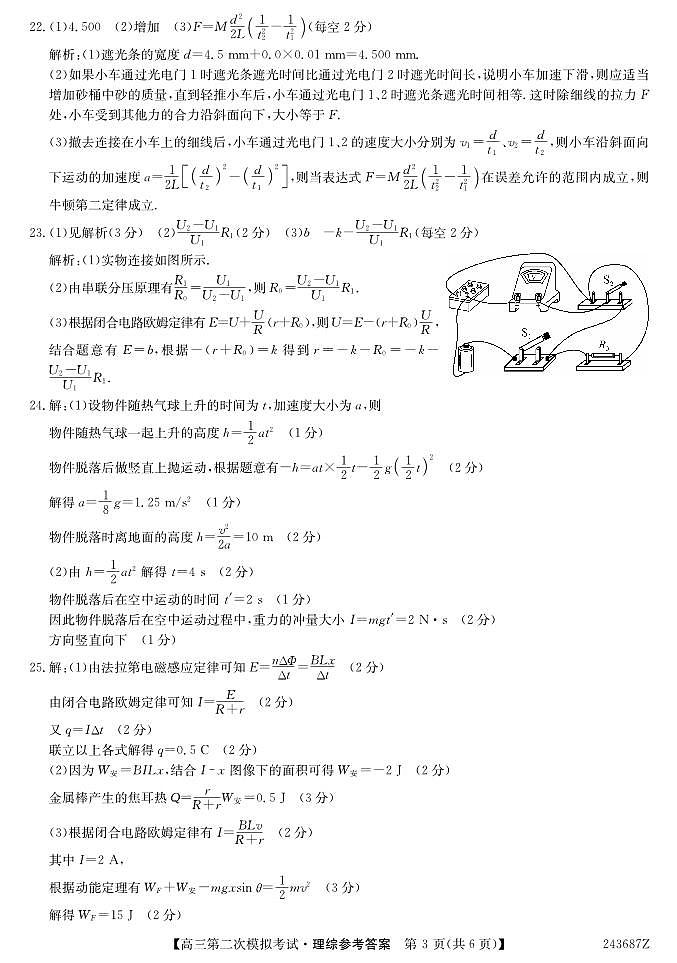 22.(1)4.500 (2)增加 (3)F=M d²/2L (1/t₂² − 1/t₁²)(每空2分)
解析:(1)遮光条的宽度 d=4.5 mm+0.0×0.01 mm=4.500 mm.
(2)如果小车通过光电门1时遮光条遮光时间比通过光电门2时遮光时间长,说明小车加速下滑,则应适当
增加砂桶中砂的质量,直到轻推小车后,小车通过光电门1、2时遮光条遮光时间相等.这时除细线的拉力 F
处,小车受到其他力的合力沿斜面向下,大小等于 F.
(3)撤去连接在小车上的细线后,小车通过光电门1、2的速度大小分别为 v₁=d/t₁、v₂=d/t₂,则小车沿斜面向
下运动的加速度 a=1/2L[(d/t₂)²−(d/t₁)²],则当表达式 F=M d²/2L (1/t₂²−1/t₁²)在误差允许的范围内成立,则
牛顿第二定律成立.
23.(1)见解析(3分) (2)(U₂−U₁)/U₁ R₁(2分) (3)b −k−(U₂−U₁)/U₁ R₁(每空2分)
解析:(1)实物连接如图所示.
(2)由串联分压原理有 R₁/R₀=U₁/(U₂−U₁),则 R₀=(U₂−U₁)/U₁ R₁.
(3)根据闭合电路欧姆定律有 E=U+U/R(r+R₀),则U=E−(r+R₀)U/R,
结合题意有 E=b,根据−(r+R₀)=k 得到 r=−k−R₀=−k−
(U₂−U₁)/U₁ R₁.
V
S₂
S₁
24.解:(1)设物件随热气球上升的时间为 t,加速度大小为 a,则
物件随热气球一起上升的高度 h=1/2 at² (1分)
物件脱落后做竖直上抛运动,根据题意有−h=at×1/2 t−1/2 g(1/2 t)² (2分)
解得 a=1/8 g=1.25 m/s² (1分)
物件脱落时离地面的高度 h=v²/2a=10 m (2分)
(2)由 h=1/2 at² 解得 t=4 s (2分)
物件脱落后在空中运动的时间 t′=2 s (1分)
因此物件脱落后在空中运动过程中,重力的冲量大小 I=mgt′=2 N·s (2分)
方向竖直向下 (1分)
25.解:(1)由法拉第电磁感应定律可知 E=nΔΦ/Δt=BLx/Δt (2分)
由闭合电路欧姆定律可知 I=E/(R+r) (2分)
又 q=IΔt (2分)
联立以上各式解得 q=0.5 C (2分)
(2)因为 W安=BILx,结合 I−x 图像下的面积可得 W安=−2 J (2分)
金属棒产生的焦耳热 Q=r/(R+r) W安=0.5 J (3分)
(3)根据闭合电路欧姆定律有 I=BLv/(R+r) (2分)
其中 I=2 A,
根据动能定理有 WF+W安−mgxsin θ=1/2 mv² (3分)
解得 WF=15 J (2分)
【高三第二次模拟考试·理综参考答案 第3页(共6页)】 243687Z